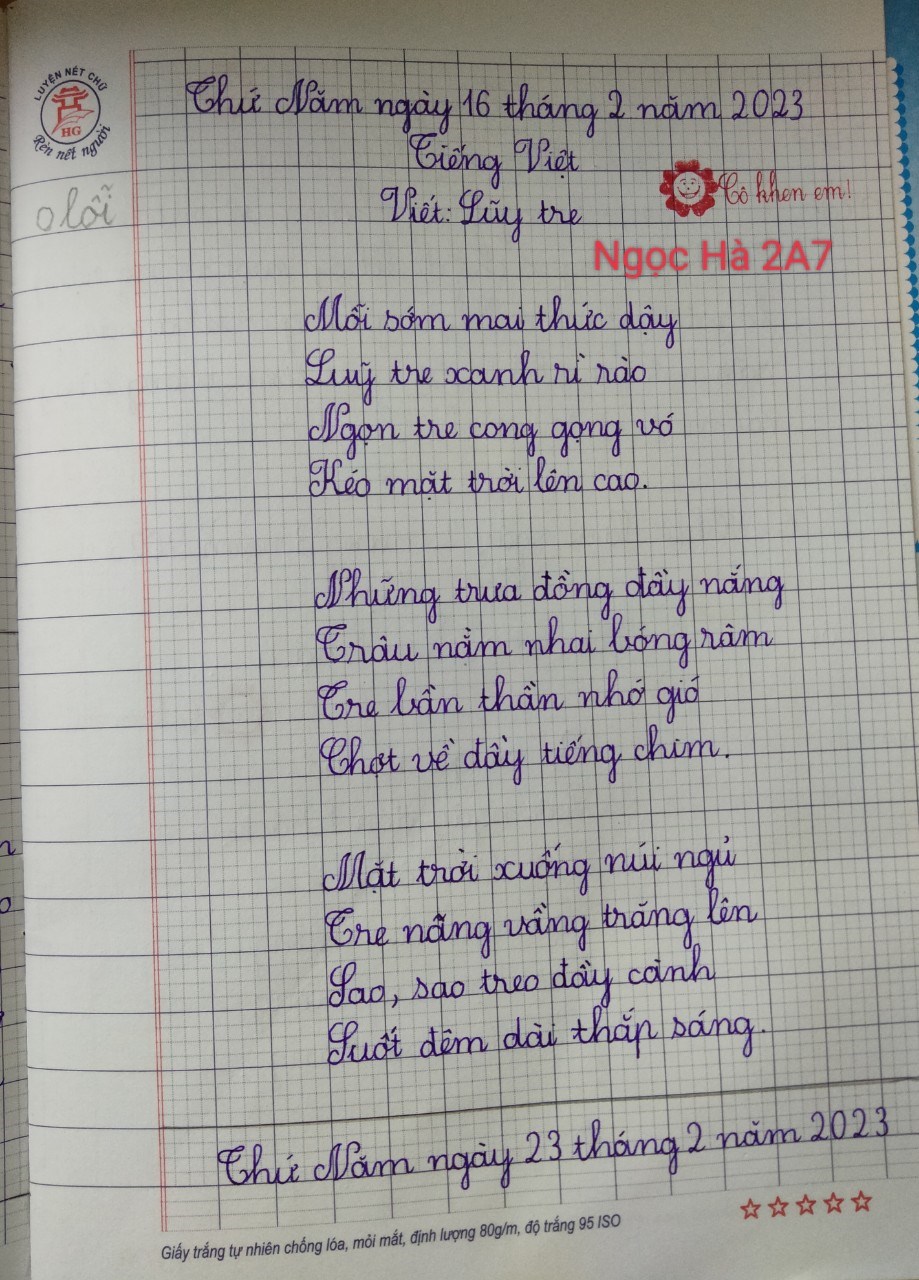 LUYỆN NÉT CHỮ
HG
Rèn nết người
Thứ Năm ngày 16 tháng 2 năm 2023
Tiếng Việt
0 lỗi
Viết: Lũy tre
Cô khen em!
Ngọc Hà 2A7
Mỗi sớm mai thức dậy
Luỹ tre xanh rì rào
Ngọn tre cong gọng vó
Kéo mặt trời lên cao.
Những trưa đồng đầy nắng
Trâu nằm nhai bóng râm
Tre bần thần nhớ gió
Chợt về đầy tiếng chim.
Mặt trời xuống núi ngủ
Tre nâng vầng trăng lên
Sao, sao treo đầy cành
Suốt đêm dài thắp sáng.
Thứ Năm ngày 23 tháng 2 năm 2023
Giấy trắng tự nhiên chống lóa, mỏi mắt, định lượng 80g/m, độ trắng 95 ISO